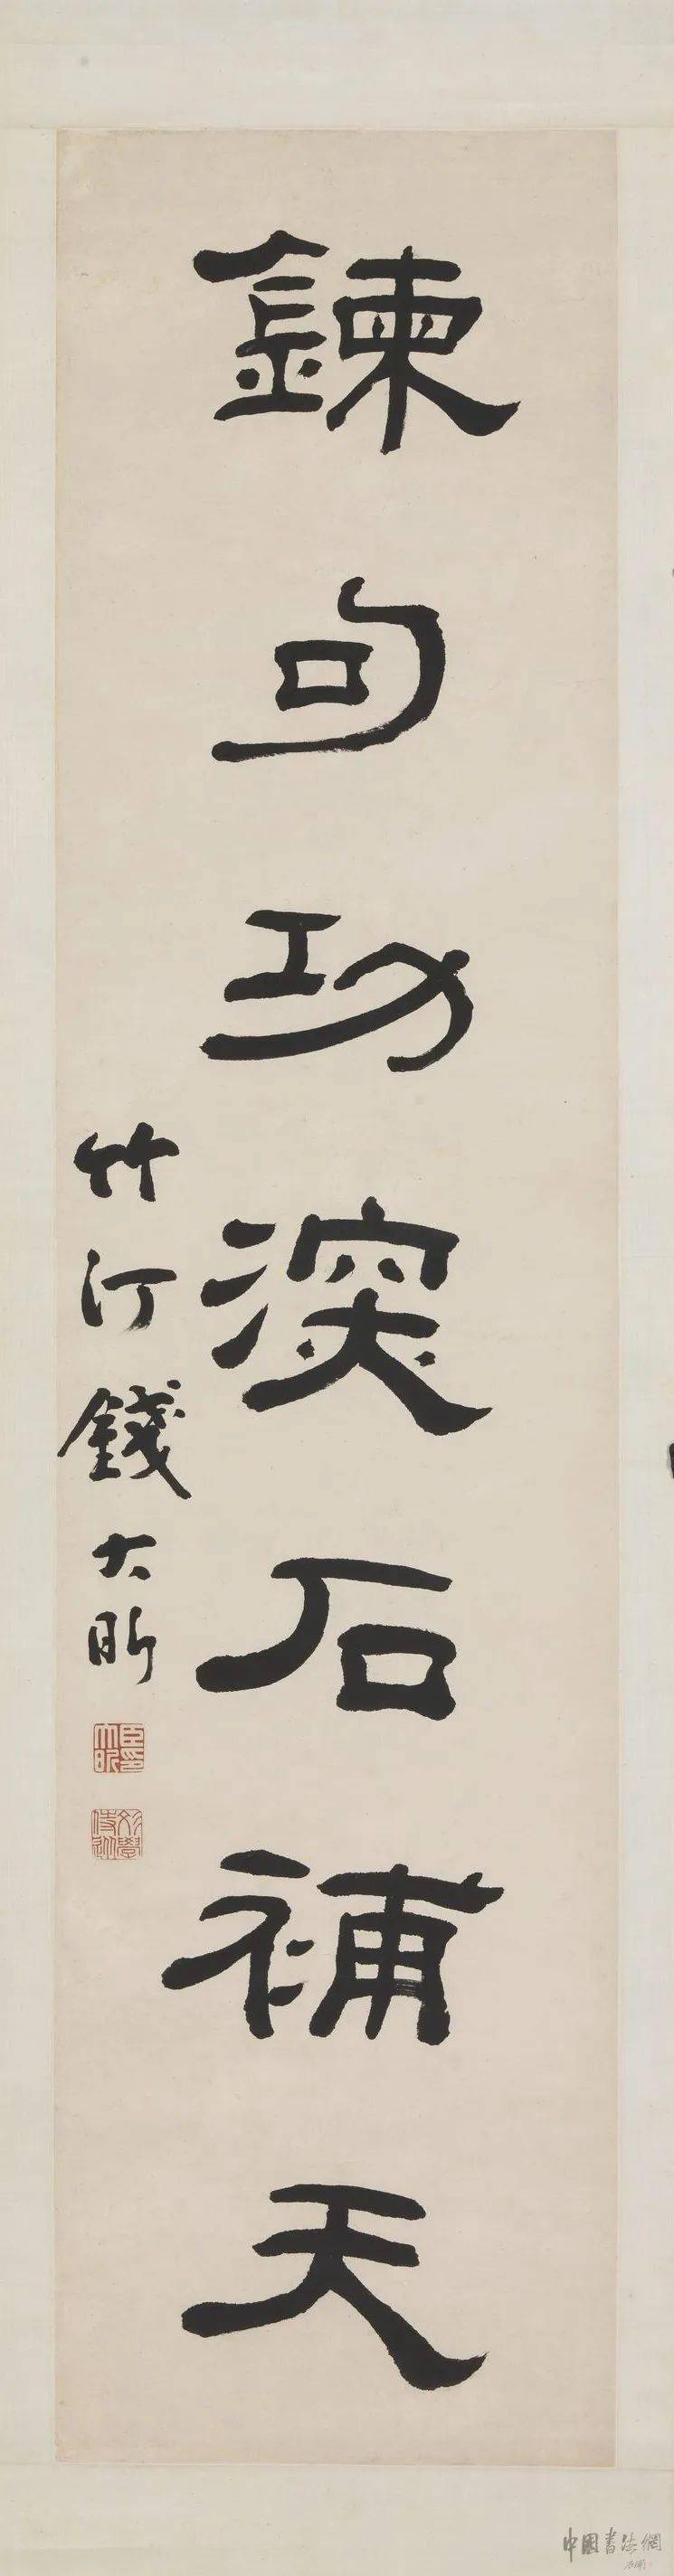 鍊句功深石補天
竹汀錢大昕
臣大昕印
中國書法網